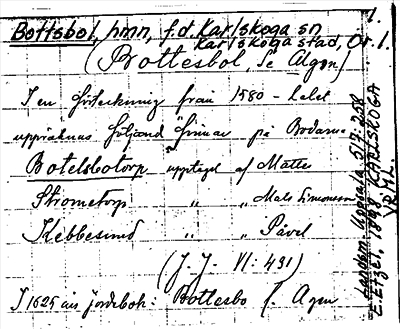 1.
Bottsbol, hmn, f.d. Karlskoga sn
Karlskoga stad, Ör. l.
(Bottesbol, se Agen)
I en förteckning från 1580-talet
uppräknas följand finnar på
Botelsbotorp upptaget af Matte
Strometorp " " Mats Simonsson
Kebbesund " " Påvel
(J. J. VI: 431)
I 1625 års jordebok: Bottesbo f. Agen
Landsm. Uppsala 517:258
E. Etzel. 1898. KARLSKOGA
VRML.